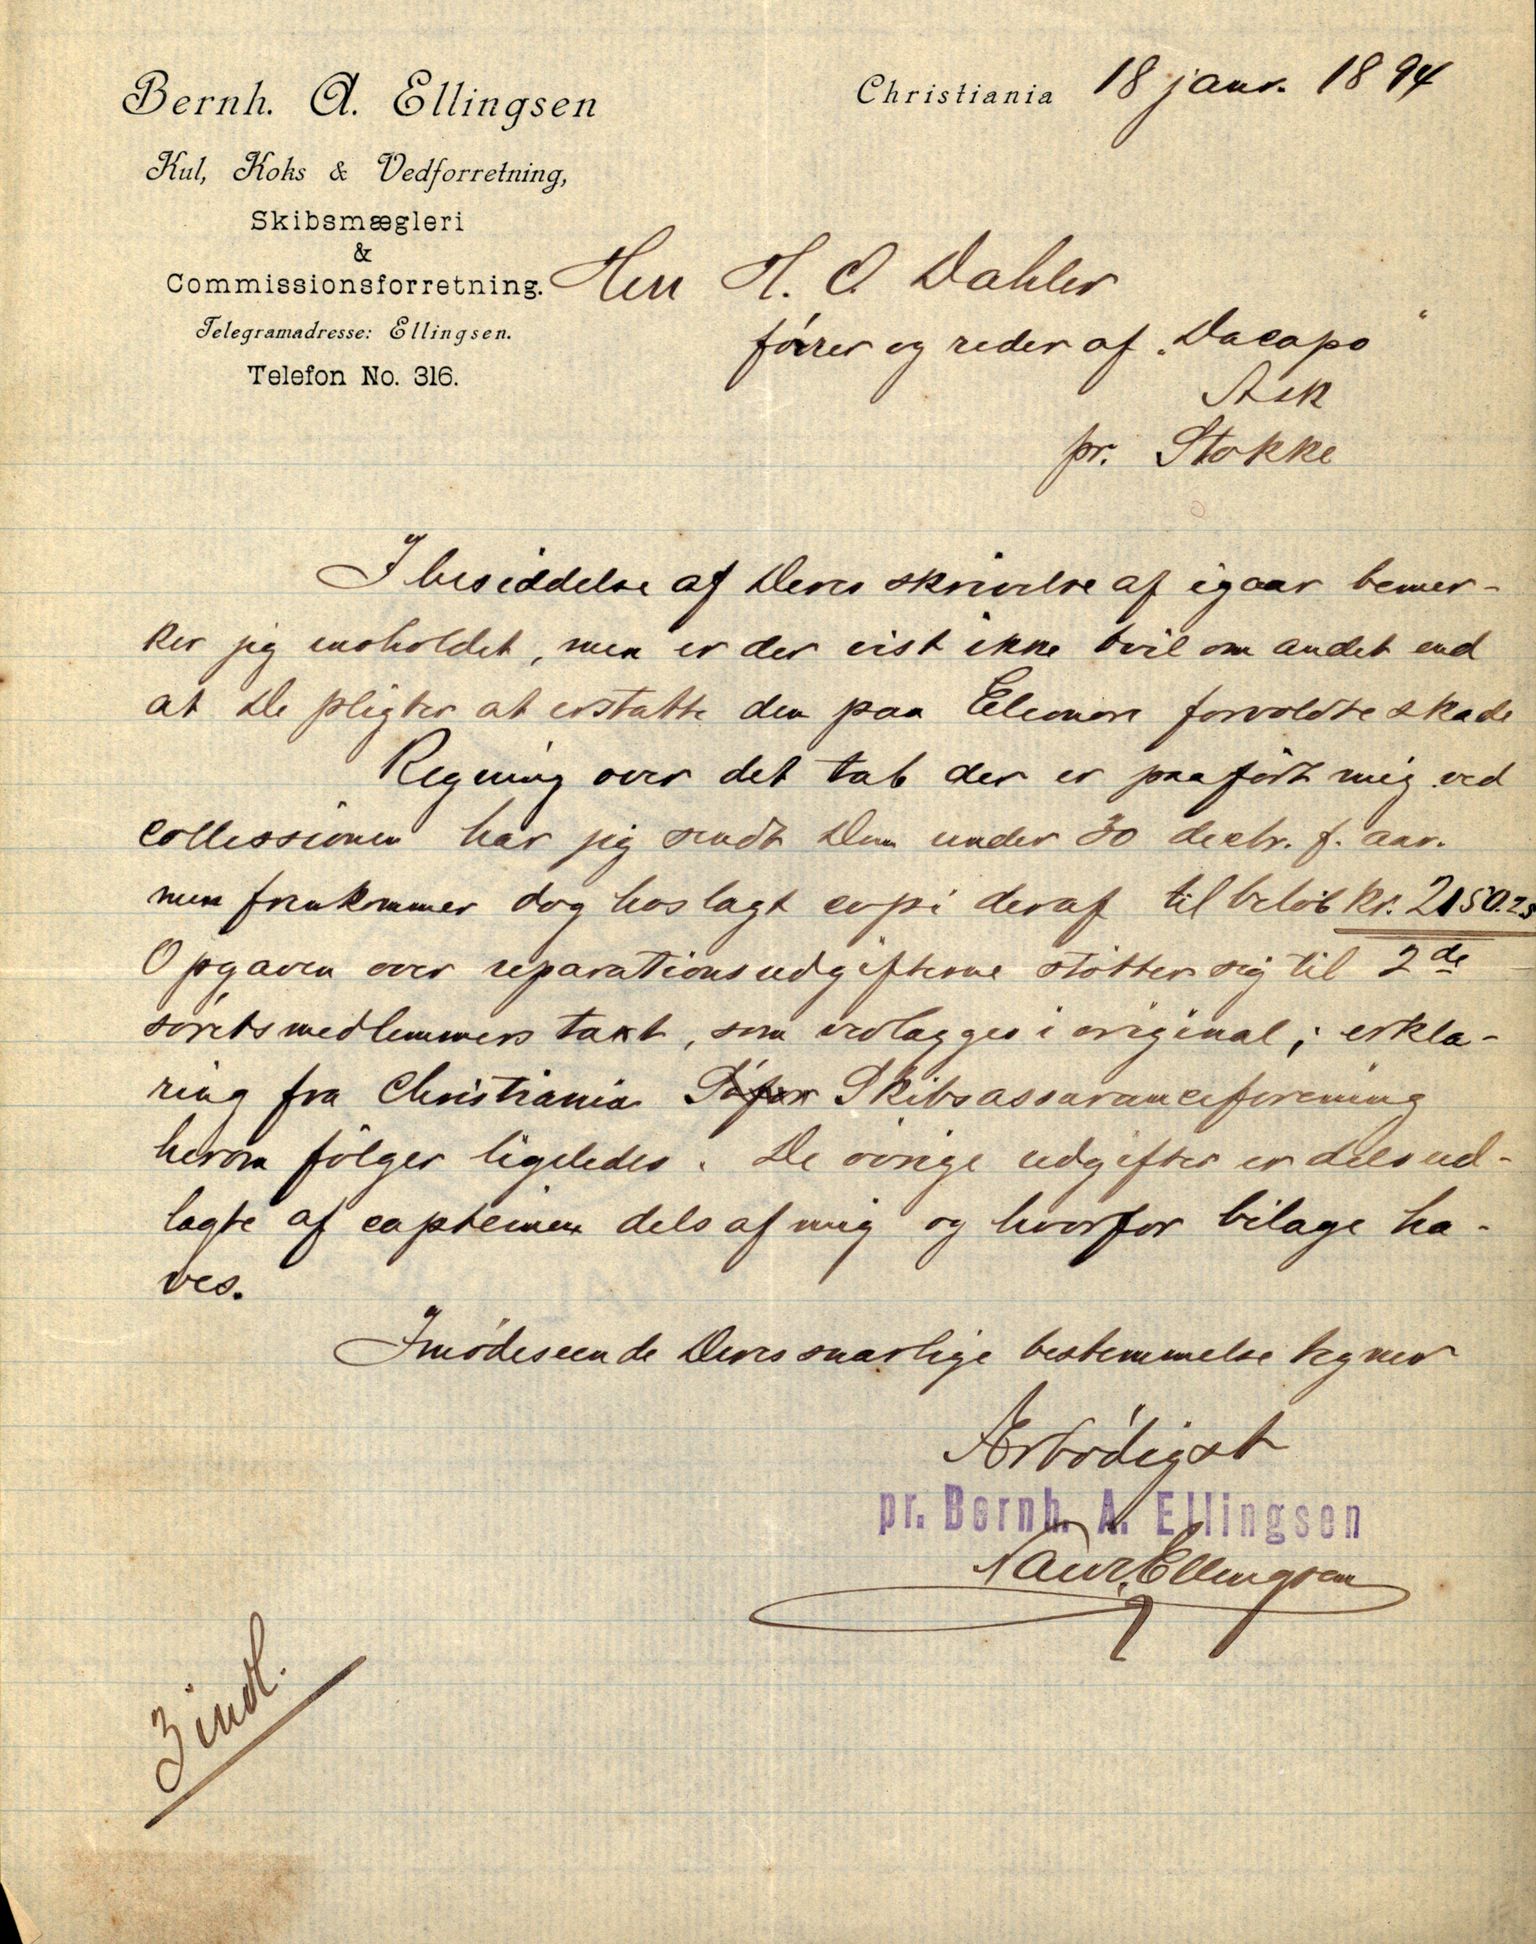 Bernh. A. Ellingsen
Kul, Koks & Vedforretning,
Skibsmægleri
&
Commissionsforretning.
Telegramadresse: Ellingsen.
Telefon No. 316.
Christiania 18 janr. 1894
Herr H. O. Dahler
fører og reder af „Dacapo“
Ask
pr. Stokke
I besiddelse af Deres skrivelse af igaar bemer-
ker jeg indholdet, men er der vist ikke tvil om andet end
at De pligter at erstatte den paa Eleonore forvoldte skade
Regning over det tab der er paaført mig ved
collissionen har jeg sendt Dem under 30 decbr. f. aar.
men fremkommer dog hoslagt copi deraf til beløb kr. 2150.25
Opgaven over reparationsudgifterne støtter sig til 2de
søretsmedlemmers taxt, som vedlægges i original; erklæ-
ring fra Christiania Skibsassuranceforening
herom følger ligeledes. De øvrige udgifter er dels ud-
lagte af capteinen dels af mig og hvorfor bilage ha-
ves.
Imødeseende Deres snarlige bestemmelse tegner
Ærbødigst
pr. Bernh. A. Ellingsen
Ellingsen
3 indl.